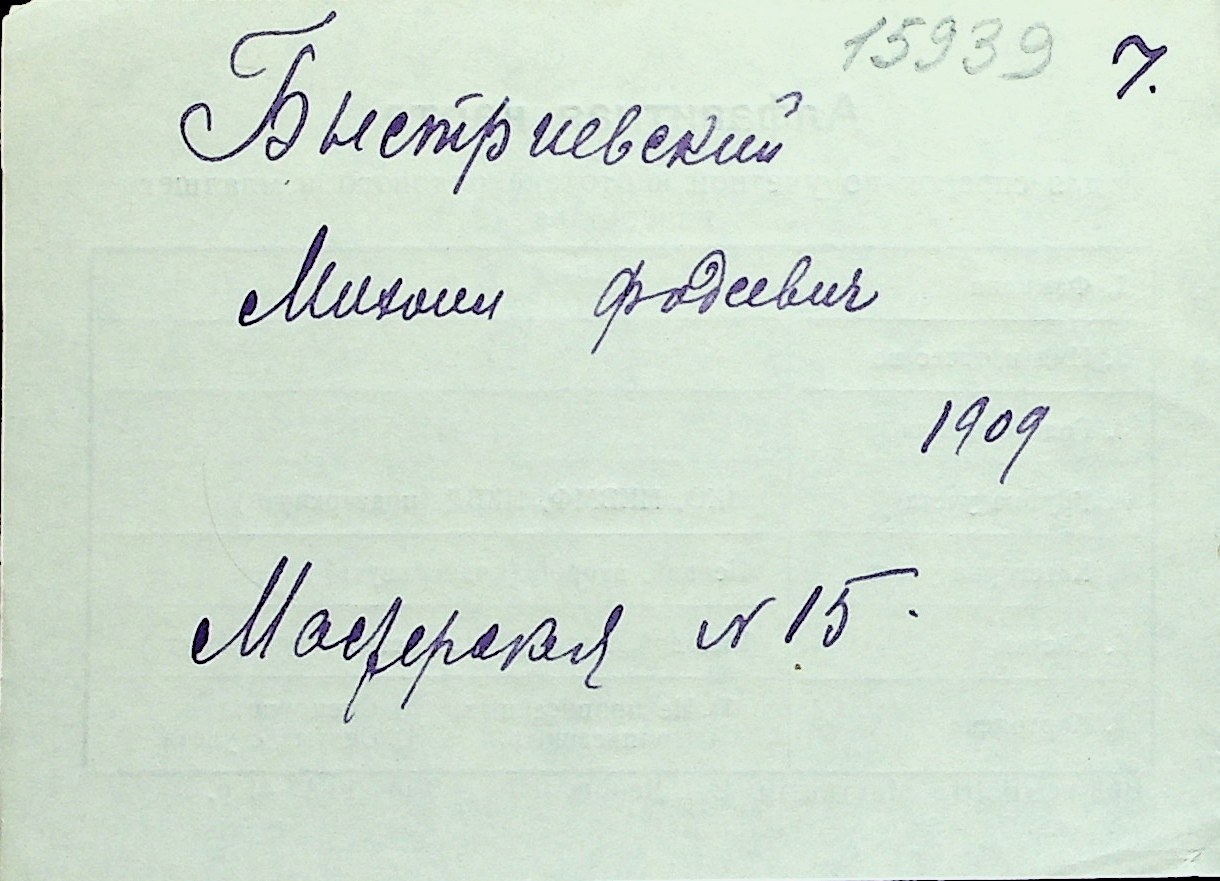 15939 7.
Быстриевский
Михаил Фадеевич
1909
Мастерская N 15.